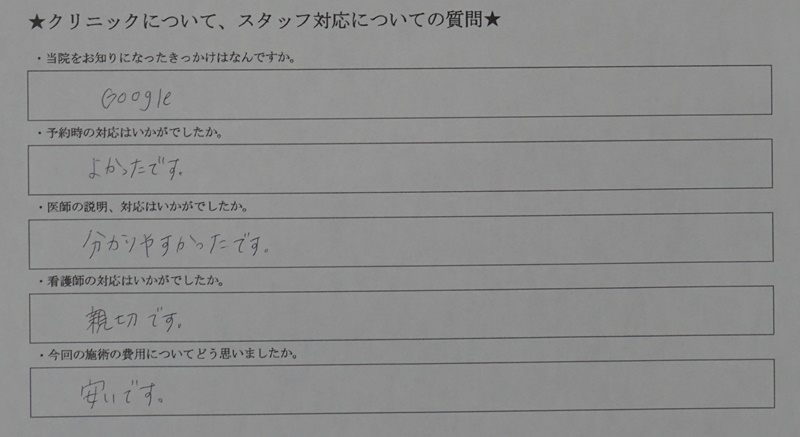 ★クリニックについて、スタッフ対応についての質問★
・当院をお知りになったきっかけはなんですか。
Google
・予約時の対応はいかがでしたか。
よかったです。
・医師の説明、対応はいかがでしたか。
分かりやすかったです。
・看護師の対応はいかがでしたか。
親切です。
・今回の施術の費用についてどう思いましたか。
安いです。